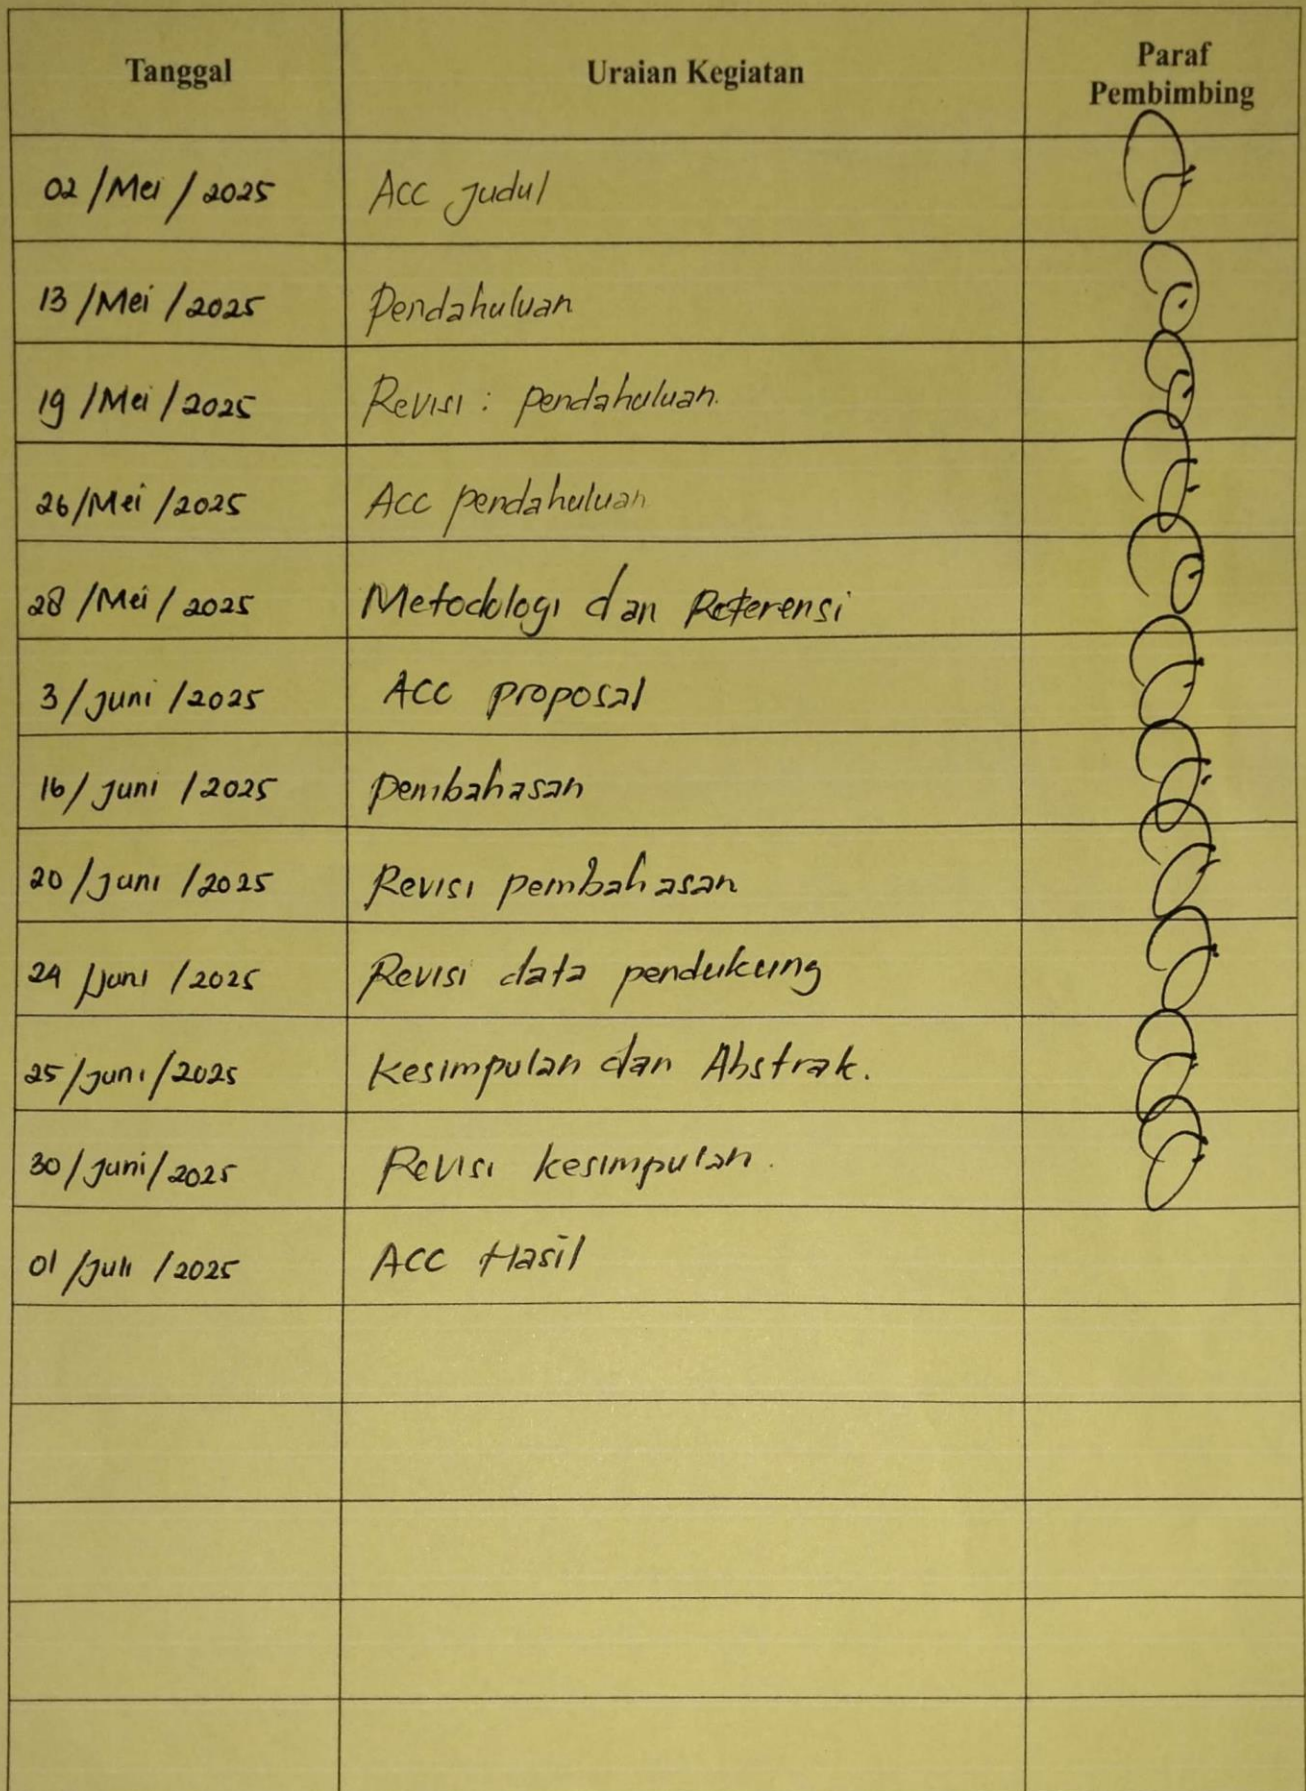 Tanggal Uraian Kegiatan Paraf Pembimbing
02 / Mei / 2025 Acc Judul
13 / Mei / 2025 Pendahuluan
19 / Mei / 2025 Revisi : pendahuluan.
26 / Mei / 2025 Acc pendahuluan
28 / Mei / 2025 Metodologi dan Referensi
3 / Juni / 2025 ACC proposal
16 / Juni / 2025 Pembahasan
20 / Juni / 2025 Revisi pembahasan
24 / Juni / 2025 Revisi data pendukung
25 / Juni / 2025 Kesimpulan dan Abstrak.
30 / Juni / 2025 Revisi kesimpulan.
01 / Juli / 2025 ACC Hasil